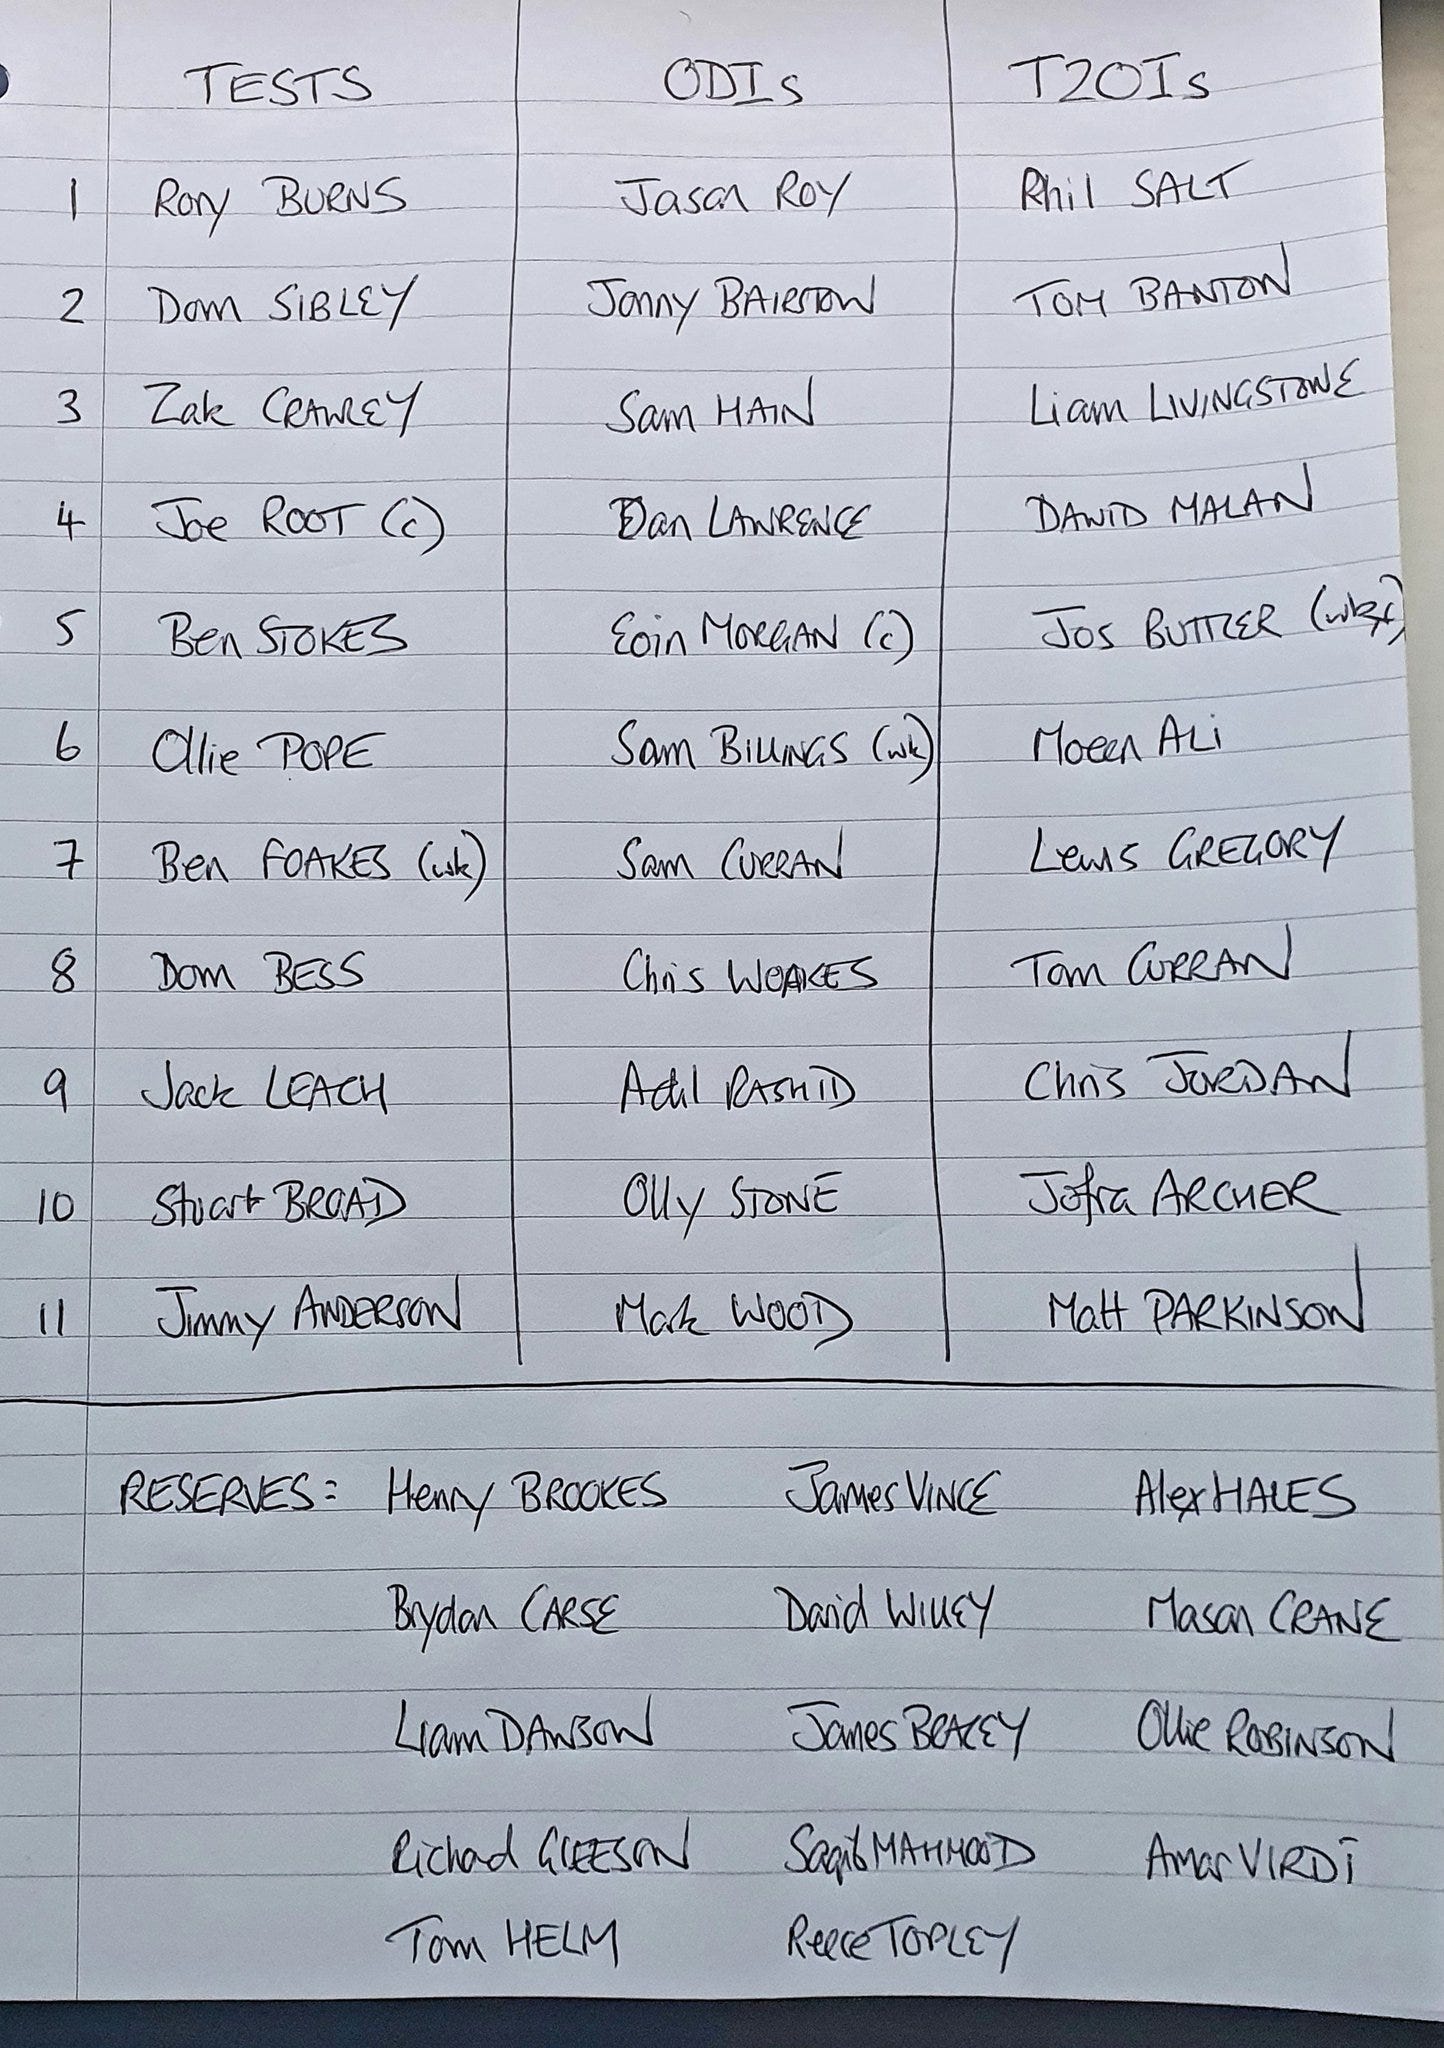 TESTS ODIs T20Is
1 Rory BURNS Jason ROY Phil SALT
2 Dom SIBLEY Jonny BAIRSTOW TOM BANTON
3 Zak CRAWLEY Sam HAIN Liam LIVINGSTONE
4 Joe ROOT (c) Dan LAWRENCE DAWID MALAN
5 Ben STOKES Eoin MORGAN (c) Jos BUTTLER (wk/c)
6 Ollie POPE Sam BILLINGS (wk) Moeen ALi
7 Ben FOAKES (wk) Sam CURRAN Lewis GREGORY
8 Dom BESS Chris WOAKES Tom CURRAN
9 Jack LEACH Adil RASHID Chris JORDAN
10 Stuart BROAD Olly STONE Jofra ARCHER
11 Jimmy ANDERSON Mark WOOD Matt PARKINSON
RESERVES: Henry BROOKES James VINCE Alex HALES
Brydon CARSE David WILLEY Mason CRANE
Liam DAWSON James BRACEY Ollie ROBINSON
Richard GLEESON Saqib MAHMOOD Amar VIRDi
Tom HELM Reece TOPLEY